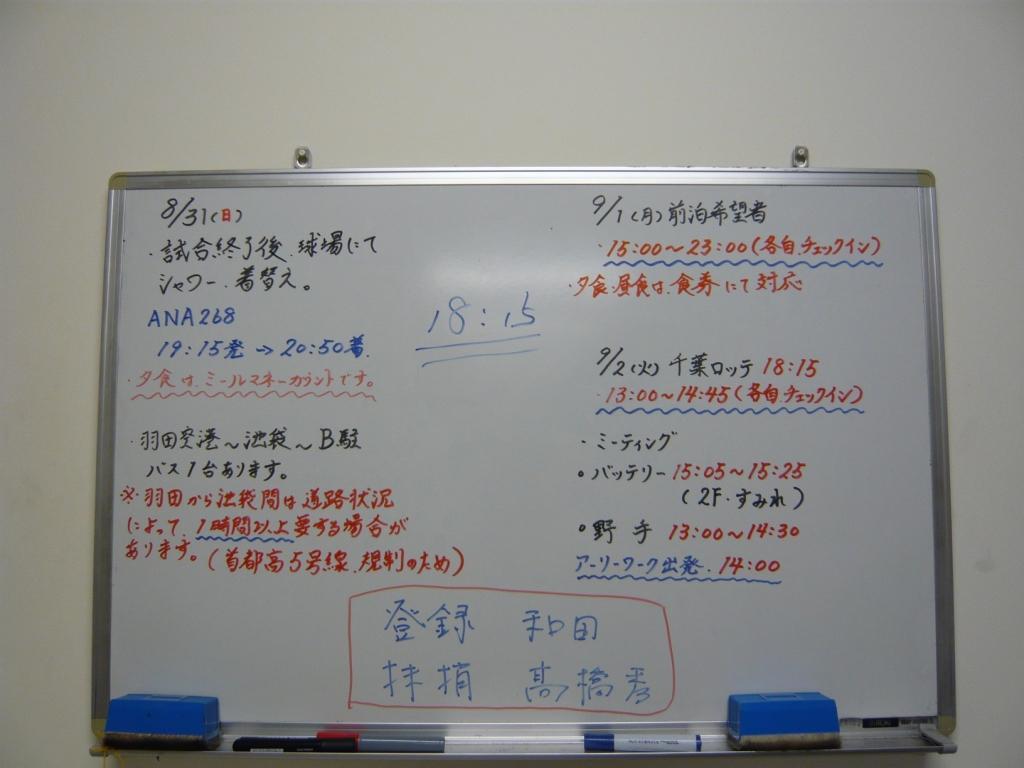 8/31(日)
・試合終了後、球場にて
シャワー、着替え。
ANA268
19:15発→20:50着
・夕食は、ミールマネーカウントです。
・羽田空港～池袋～B駐
バス1台あります。
※羽田から池袋間は道路状況
によって、1時間以上要する場合が
あります。(首都高5号線、規制のため)
18:15
9/1(月)前泊希望者
・15:00～23:00(各自、チェックイン)
・夕食・昼食は、食券にて対応
9/2(火)千葉ロッテ 18:15
・13:00～14:45(各自、チェックイン)
・ミーティング
○バッテリー 15:05～15:25
(2F・すみれ)
○野手 13:00～14:30
アーリーワーク出発、14:00
登録 和田
抹梢 高橋秀